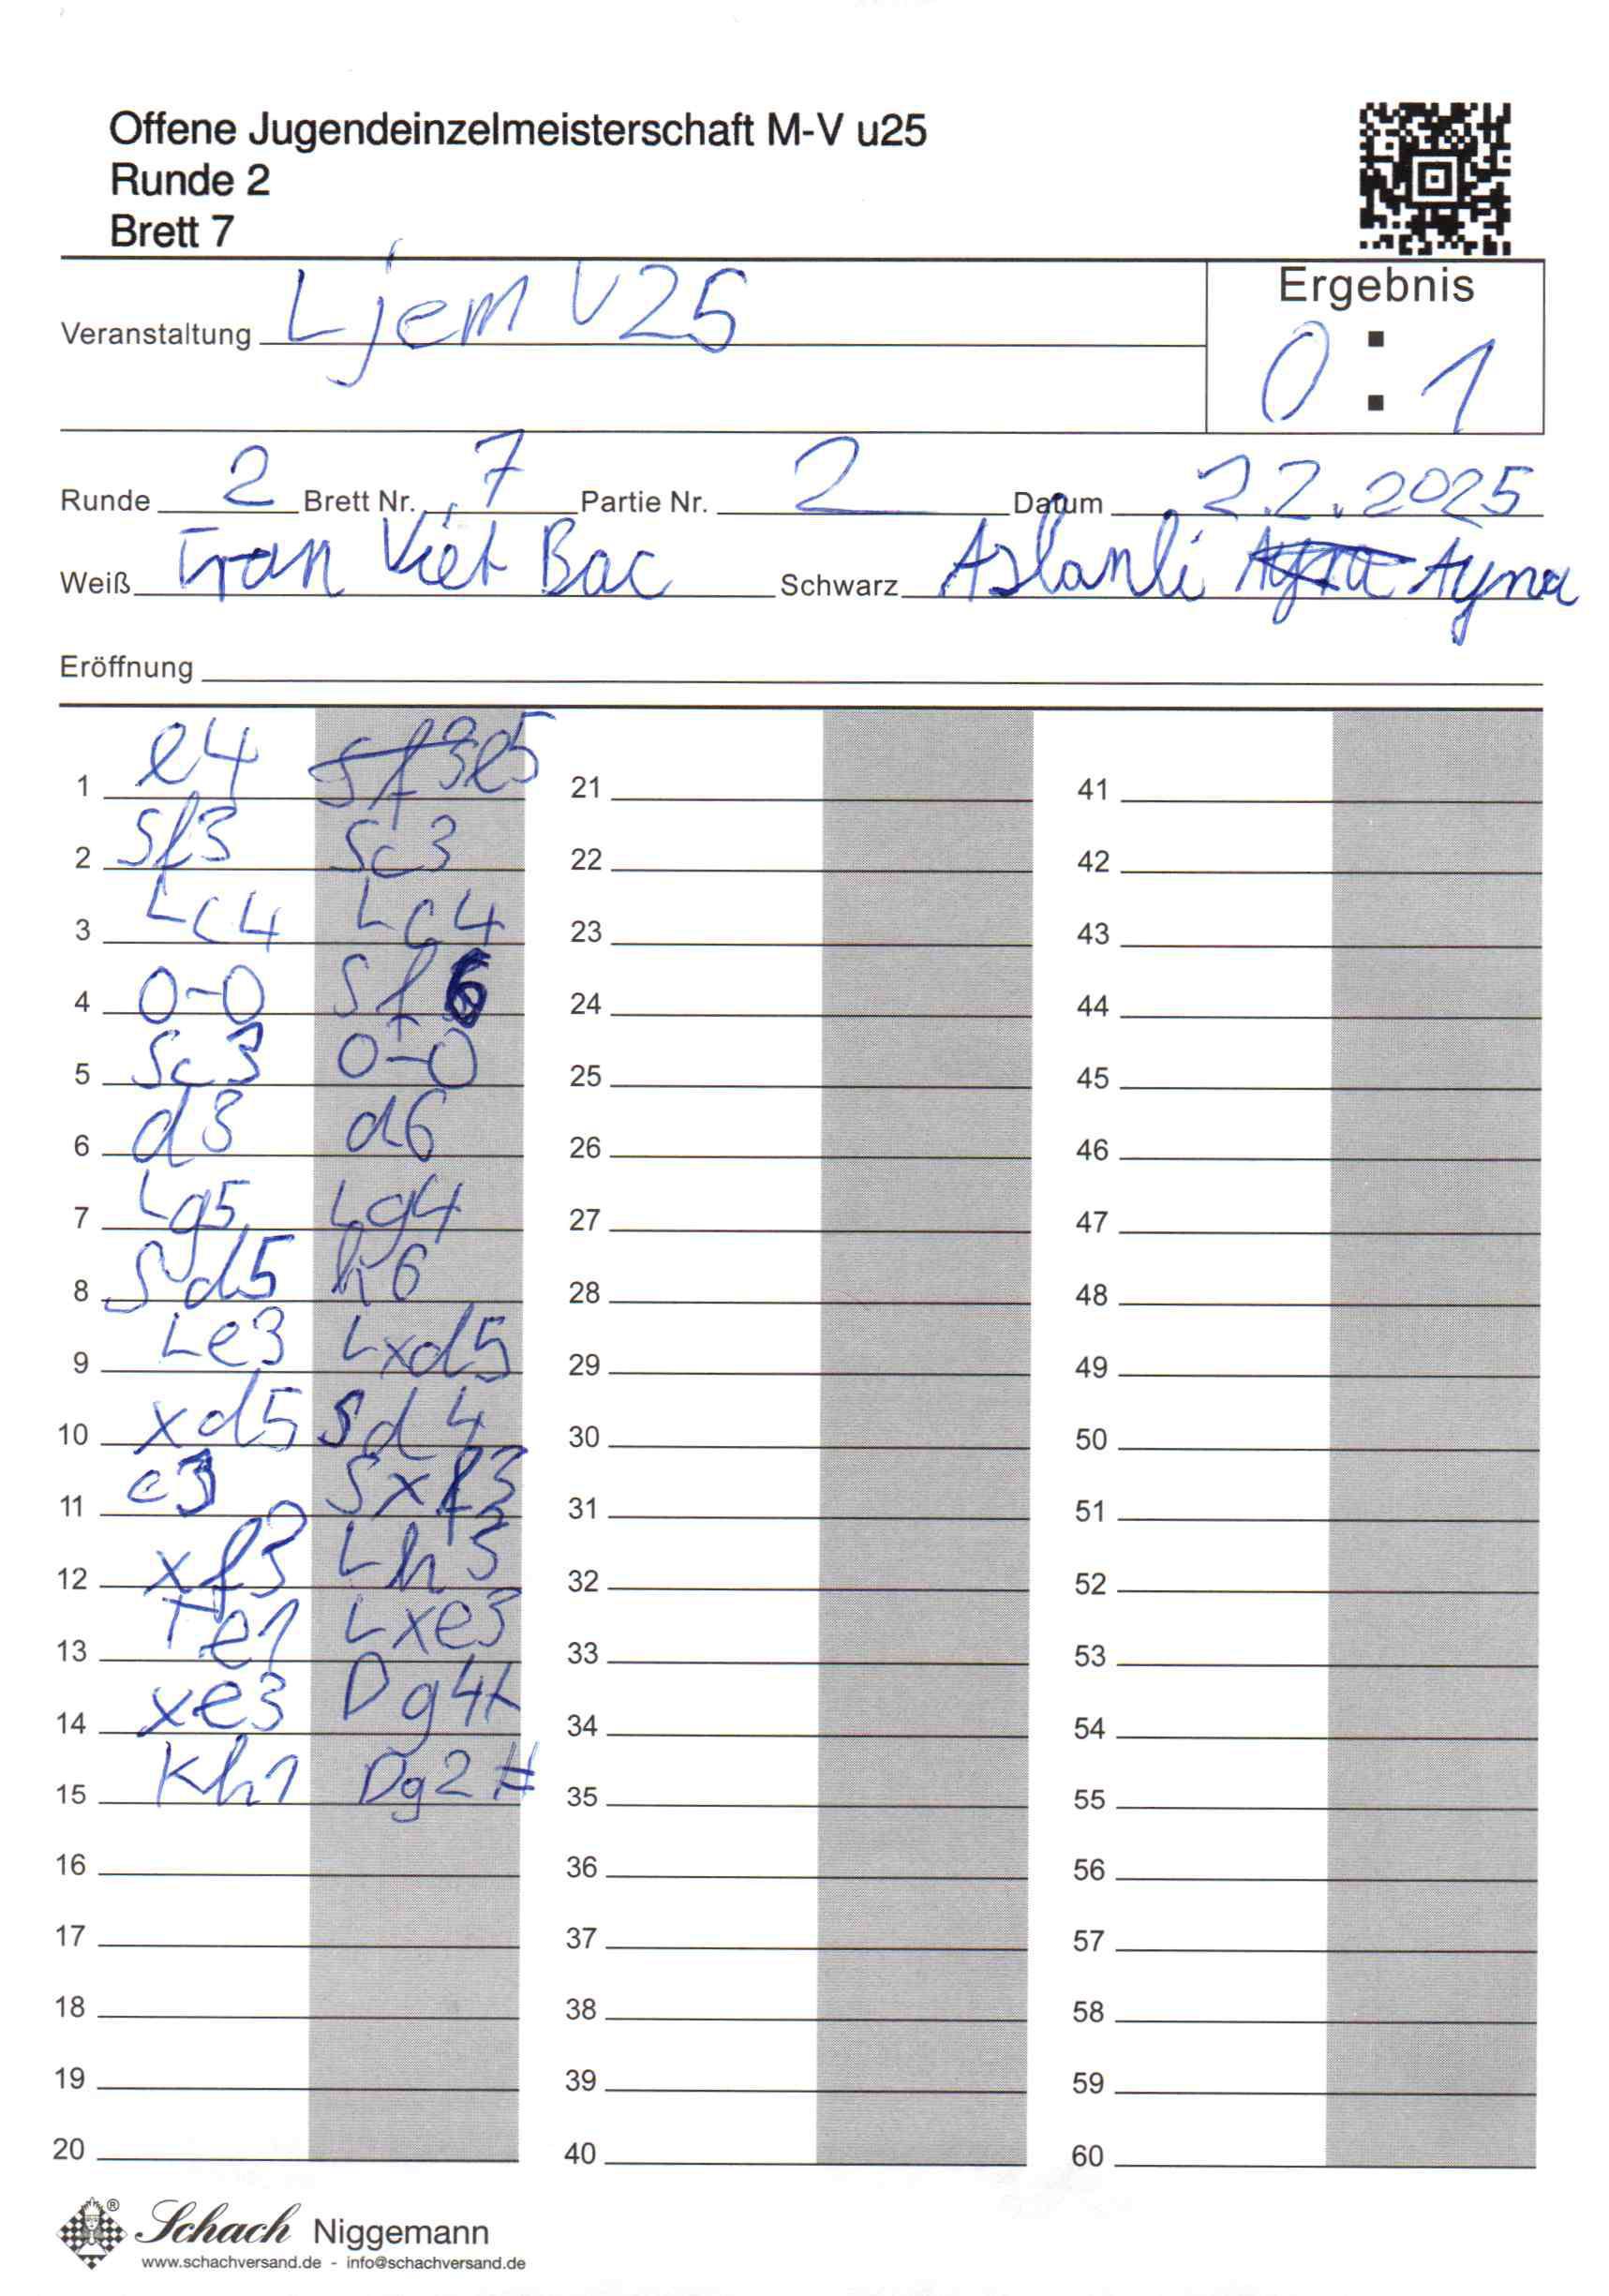 Offene Jugendeinzelmeisterschaft M-V u25
Runde 2
Brett 7
Veranstaltung Ljem U25
Ergebnis
0 : 1
Runde 2 Brett Nr. 7 Partie Nr. 2 Datum 2.2.2025
Weiß Tran Viet Bac Schwarz Aslanli Ayna Ayna
Eröffnung
1 e4 Sf3 e5 21 41
2 Sf3 Sc3 22 42
3 Lc4 Lc4 23 43
4 0-0 Sf6 24 44
5 Sc3 0-0 25 45
6 d3 d6 26 46
7 Lg5 Lg4 27 47
8 Sd5 h6 28 48
9 Le3 Lxd5 29 49
10 xd5 Sd4 30 50
11 c3 Sxf3 31 51
12 xf3 Lh3 32 52
13 Te1 Lxe3 33 53
14 xe3 Dg4+ 34 54
15 Kh1 Dg2# 35 55
16 36 56
17 37 57
18 38 58
19 39 59
20 40 60
® Schach Niggemann
www.schachversand.de - info@schachversand.de